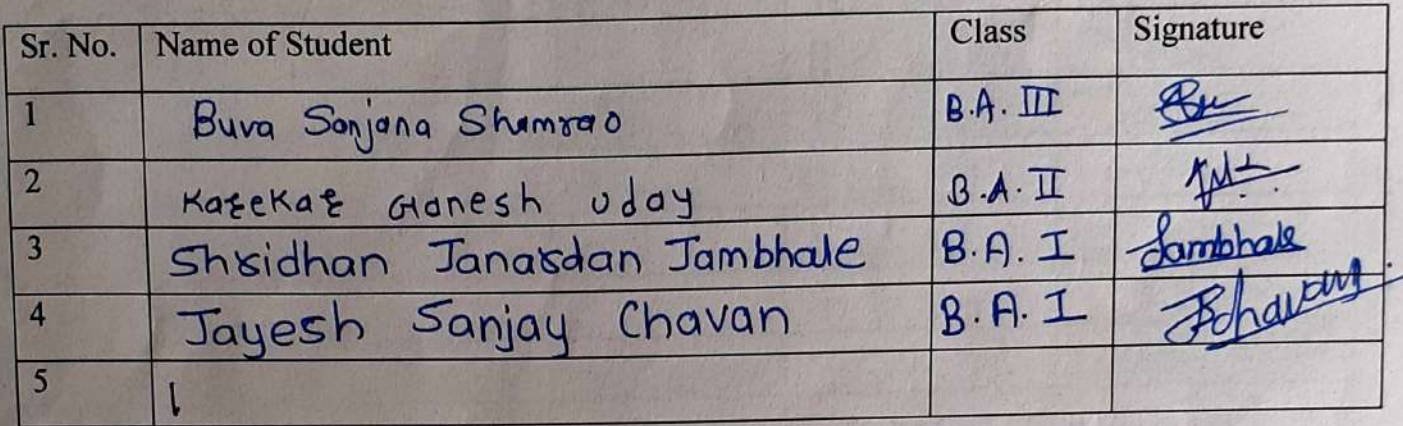 Sr. No. Name of Student Class Signature
1 Buva Sanjana Shamrao B.A. III
2 Karekar Ganesh Uday B.A. II
3 Shridhan Janardan Jambhale B.A. I Jambhale
4 Jayesh Sanjay Chavan B.A. I JSChavan
5